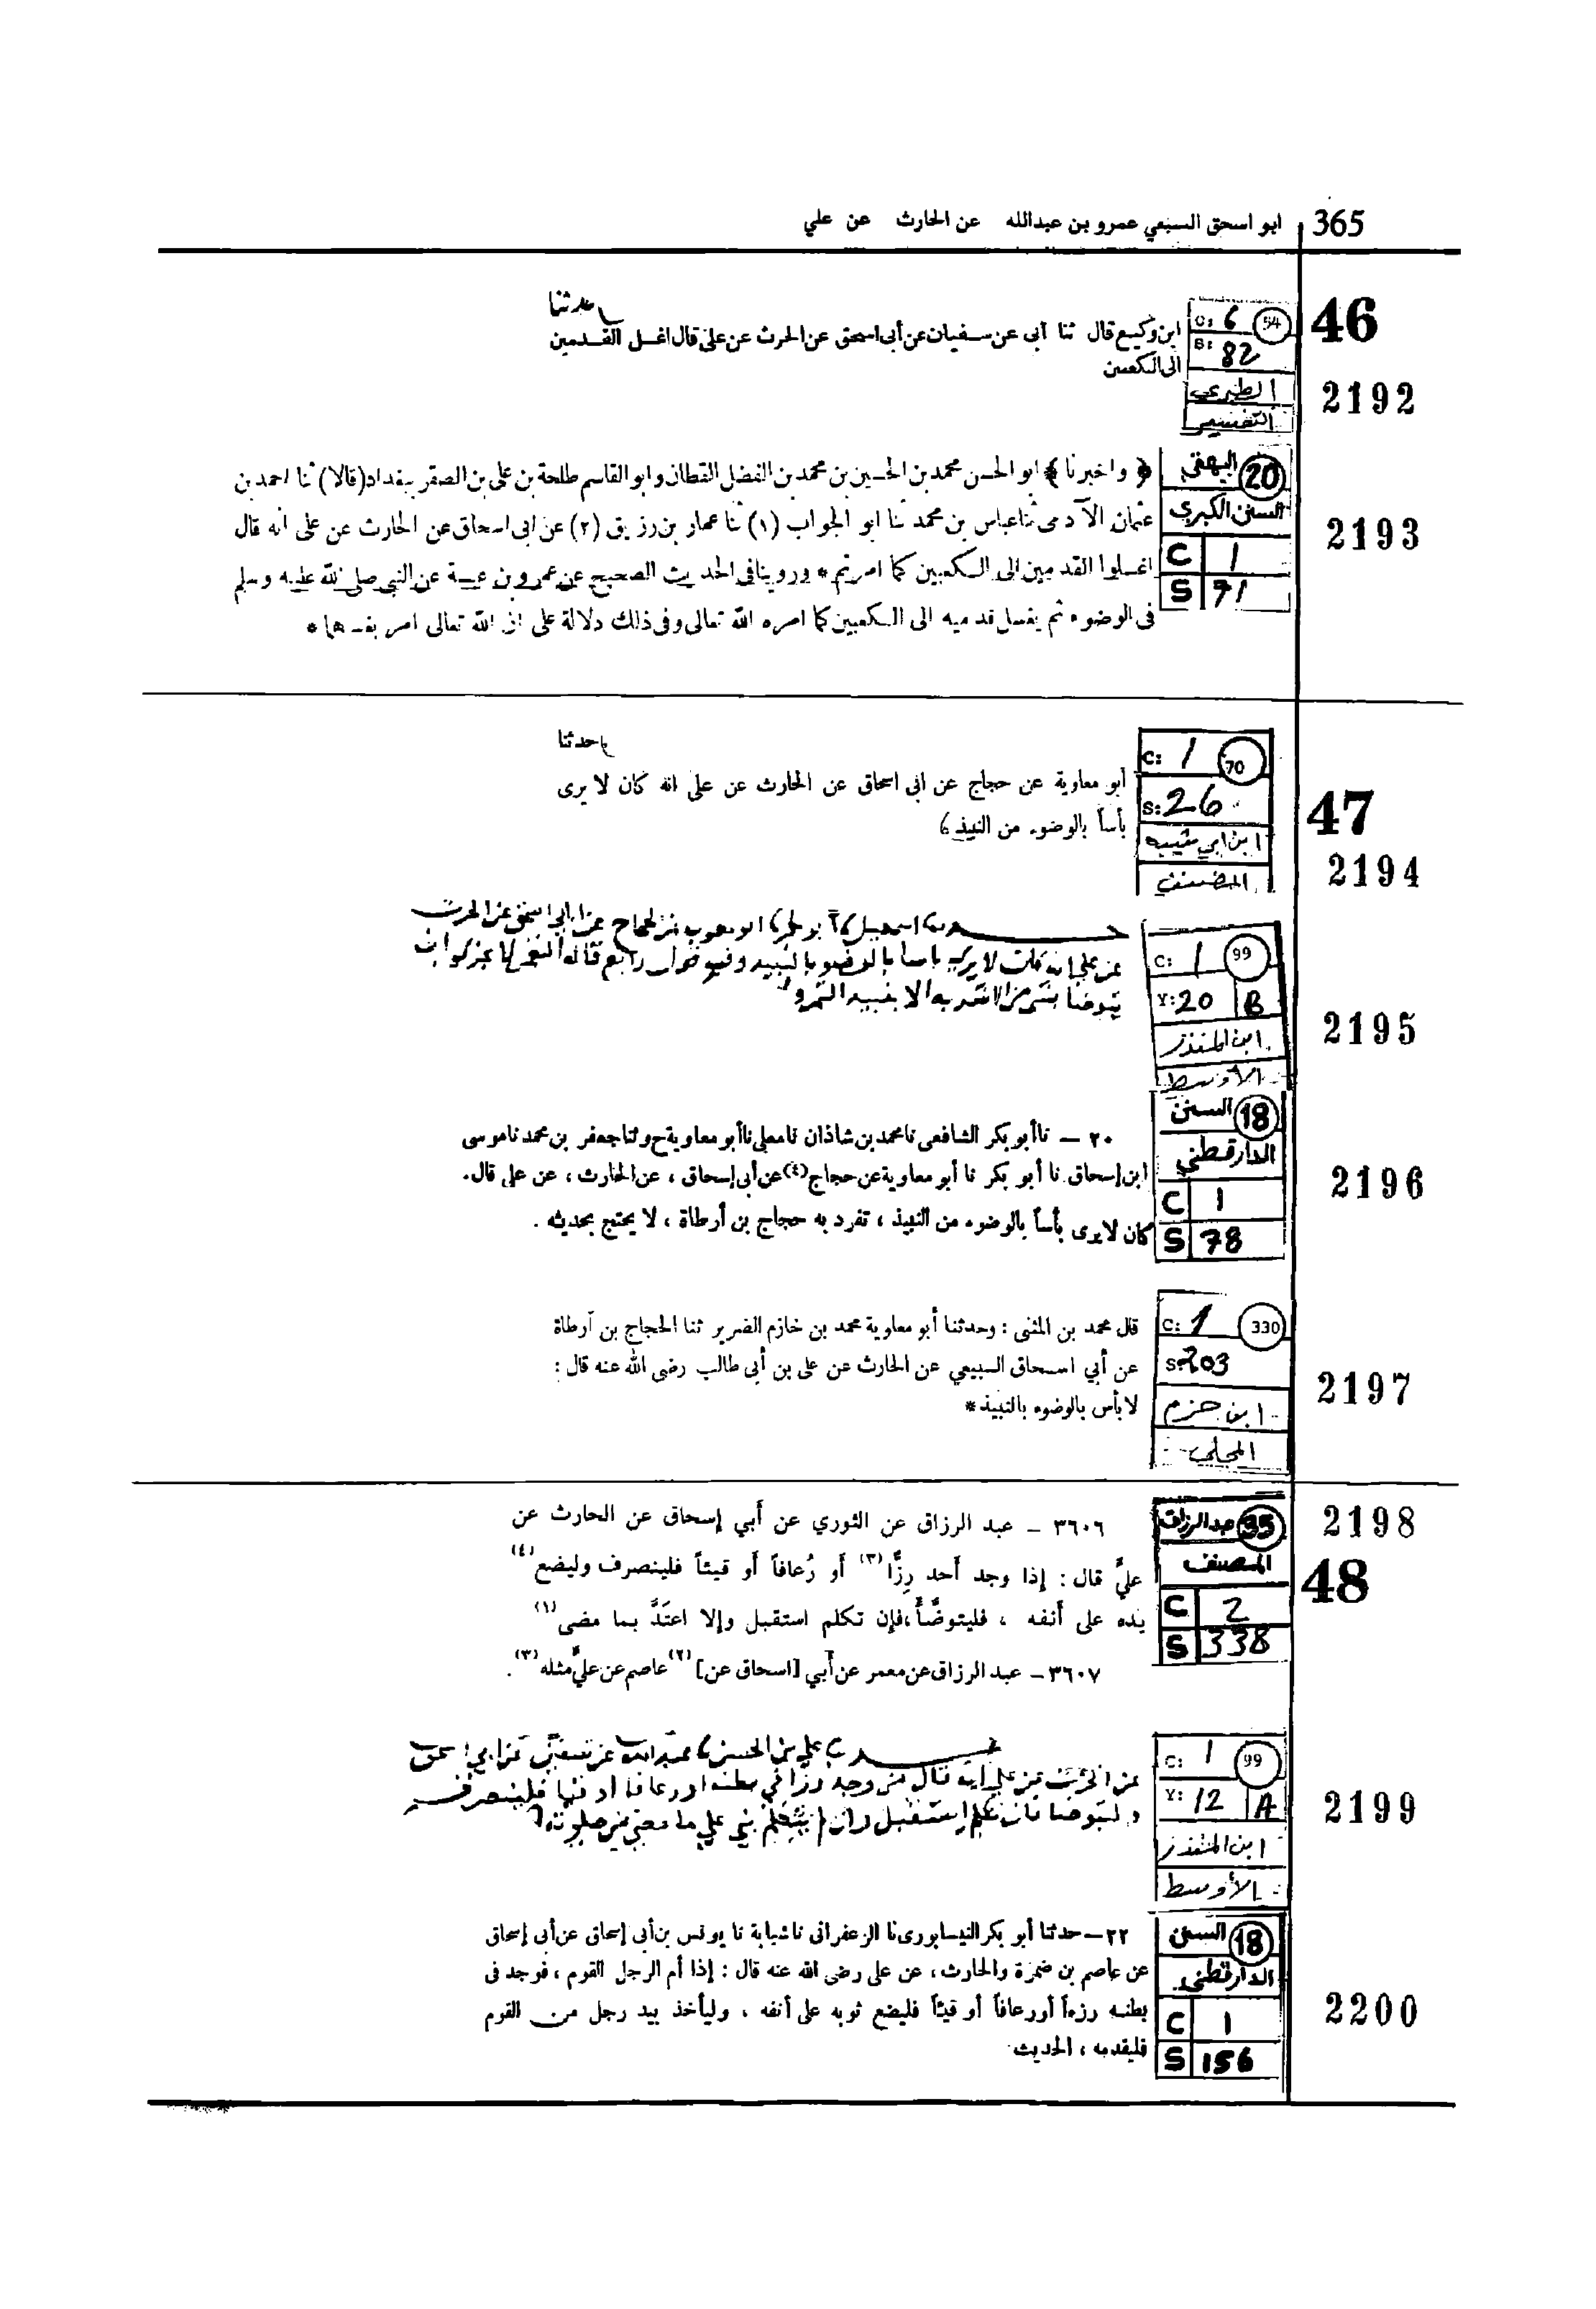 365 ابو اسحق السبيعي عمرو بن عبدالله عن الحارث عن علي
46
2192
C: 6 54
S: 82
الطبري
التفسير
حدثنا
ابن وكيع قال ثنا أبى عن سفيان عن أبى اسحق عن الحرث عن على قال اغسل القدمين
الى الكعبين
2193
البيهقي 20
السنن الكبرى
C 1
S 71
﴿ واخبرنا ﴾ ابو الحسن محمد بن الحسين بن محمد بن الفضل القطان وابو القاسم طلحة بن على بن الصقر ببغداد (قالا) ثنا احمد بن
عثمان الآدمى ثنا عباس بن محمد ثنا ابو الجواب (١) ثنا عمار بن رزيق (٢) عن ابى اسحاق عن الحارث عن على انه قال
اغسلوا القدمين الى الكعبين كما امرتم * وروينا فى الحديث الصحيح عن عمرو بن عبسة عن النبى صلى الله عليه وسلم
فى الوضوء ثم يغسل قدميه الى الكعبين كما امره الله تعالى وفى ذلك دلالة على ان الله تعالى امر بغسلهما *
47
2194
C: 1 70
S: 26
ابن ابي شيبه
المصنف
حدثنا
أبو معاوية عن حجاج عن ابى اسحاق عن الحارث عن على انه كان لا يرى
بأساً بالوضوء من النبيذ
2195
C: 1 99
Y: 20 B
ابن المنذر
الأوسط
اسمعيل ابو بكر ابو معوية عن الحجاج عن ابي اسحق عن الحرث
عن علي انه كان لا يرى باسا بالوضو بالنبيذ وفيه قول رابع قاله
2196
السنن 18
الدارقطني
C 1
S 78
٢٠ – نا أبو بكر الشافعى نا محمد بن شاذان نا معلى نا أبو معاوية ح وثنا جعفر بن محمد نا موسى
ابن إسحاق نا أبو بكر نا أبو معاوية عن حجاج (٤) عن أبى إسحاق ، عن الحارث ، عن على قال .
كان لا يرى بأساً بالوضوء من النبيذ ، تفرد به حجاج بن أرطاة ، لا يحتج بحديثه .
2197
C: 1 330
S: 203
ابن حزم
المحلى
قال محمد بن المثنى : وحدثنا أبو معاوية محمد بن خازم الضرير ثنا الحجاج بن أرطاة
عن أبي اسحاق السبيعي عن الحارث عن على بن أبى طالب رضى الله عنه قال :
لا بأس بالوضوء بالنبيذ *
2198
48
عبد الرزاق 35
المصنف
C 2
S 338
٣٦٠٦ – عبد الرزاق عن الثوري عن أبي إسحاق عن الحارث عن
عليّ قال : إذا وجد أحد رِزًّا (٣) أو رُعافاً أو قيئاً فلينصرف وليضع (٤)
يده على أنفه ، فليتوضّأ ، فإن تكلم استقبل وإلا اعتَدَّ بما مضى (١)
٣٦٠٧ – عبد الرزاق عن معمر عن أبي [اسحاق عن] (٢) عاصم عن عليّ مثله (٣) .
2199
C: 1 99
Y: 12 A
ابن المنذر
الأوسط
علي بن الحسن عبد الله عن سفين عن ابي اسحق
عن الحرث عن علي انه قال من وجد رزا في بطنه او رعافا او قيا فلينصرف
وليتوضا فان تكلم استقبل وان لم يتكلم بنى علي ما مضى من صلوته
2200
السنن 18
الدارقطني
C 1
S 156
٢٢ – حدثنا أبو بكر النيسابورى نا الزعفرانى نا شبابة نا يونس بن أبى إسحاق عن أبى إسحاق
عن عاصم بن ضمرة والحارث ، عن على رضى الله عنه قال : إذا أم الرجل القوم ، فوجد فى
بطنه رزءاً أو رعافاً أو قيئاً فليضع ثوبه على أنفه ، وليأخذ بيد رجل من القوم
فليقدمه ، الحديث